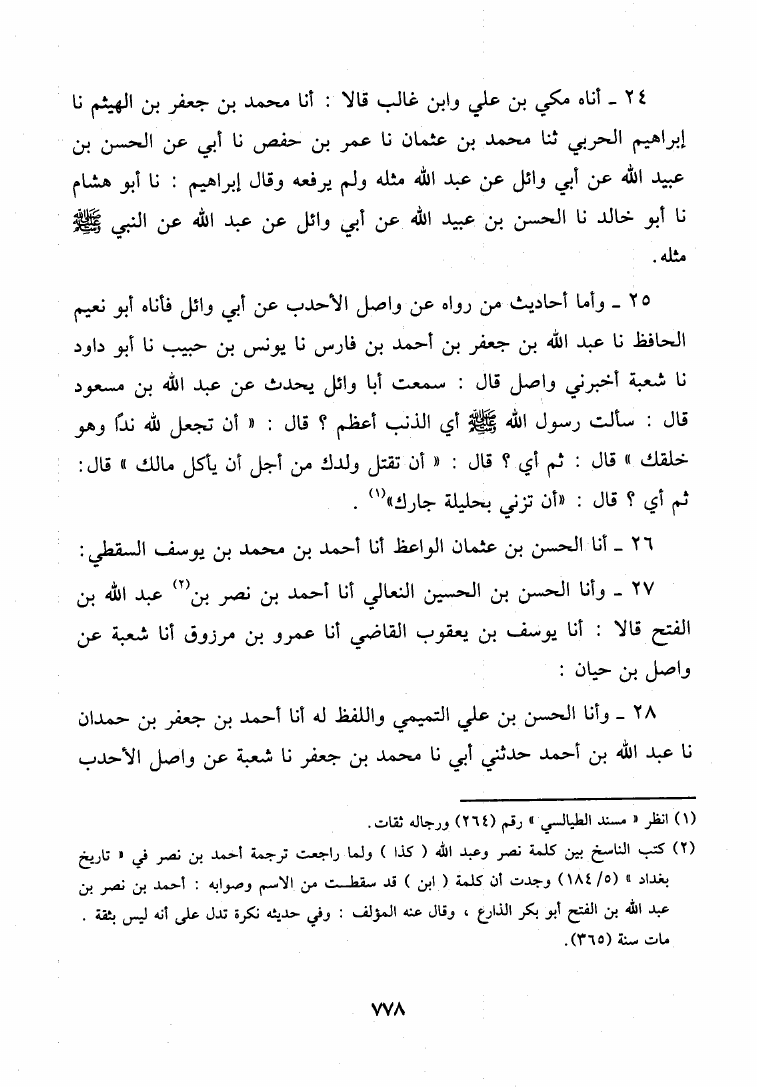 ٢٤ ـ أناه مكي بن علي وابن غالب قالا : أنا محمد بن جعفر بن الهيثم نا
إبراهيم الحربي ثنا محمد بن عثمان نا عمر بن حفص نا أبي عن الحسن بن
عبيد الله عن أبي وائل عن عبد الله مثله ولم يرفعه وقال إبراهيم : نا أبو هشام
نا أبو خالد نا الحسن بن عبيد الله عن أبي وائل عن عبد الله عن النبي ﷺ
مثله .
٢٥ ـ وأما أحاديث من رواه عن واصل الأحدب عن أبي وائل فأناه أبو نعيم
الحافظ نا عبد الله بن جعفر بن أحمد بن فارس نا يونس بن حبيب نا أبو داود
نا شعبة أخبرني واصل قال : سمعت أبا وائل يحدث عن عبد الله بن مسعود
قال : سألت رسول الله ﷺ أي الذنب أعظم ؟ قال : « أن تجعل لله ندًا وهو
خلقك » قال : ثم أي ؟ قال : « أن تقتل ولدك من أجل أن يأكل مالك » قال :
ثم أي ؟ قال : «أن تزني بحليلة جارك»(١) .
٢٦ ـ أنا الحسن بن عثمان الواعظ أنا أحمد بن محمد بن يوسف السقطي :
٢٧ ـ وأنا الحسن بن الحسين النعالي أنا أحمد بن نصر بن(٢) عبد الله بن
الفتح قالا : أنا يوسف بن يعقوب القاضي أنا عمرو بن مرزوق أنا شعبة عن
واصل بن حيان :
٢٨ ـ وأنا الحسن بن علي التميمي واللفظ له أنا أحمد بن جعفر بن حمدان
نا عبد الله بن أحمد حدثني أبي نا محمد بن جعفر نا شعبة عن واصل الأحدب
(١) انظر « مسند الطيالسي » رقم (٢٦٤) ورجاله ثقات .
(٢) كتب الناسخ بين كلمة نصر وعبد الله ( كذا ) ولما راجعت ترجمة أحمد بن نصر في « تاريخ
بغداد » (٥/ ١٨٤) وجدت أن كلمة ( ابن ) قد سقطت من الاسم وصوابه : أحمد بن نصر بن
عبد الله بن الفتح أبو بكر الذارع ، وقال عنه المؤلف : وفي حديثه نكرة تدل على أنه ليس بثقة .
مات سنة (٣٦٥).
٧٧٨